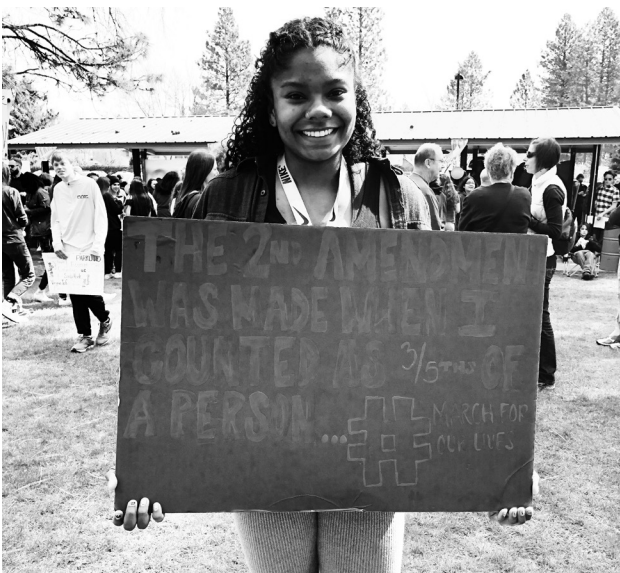 THE 2ND AMENDMEN
WAS MADE WHEN I
COUNTED AS 3/5THS OF
A PERSON...# MARCH FOR
OUR LIVES
NIKE